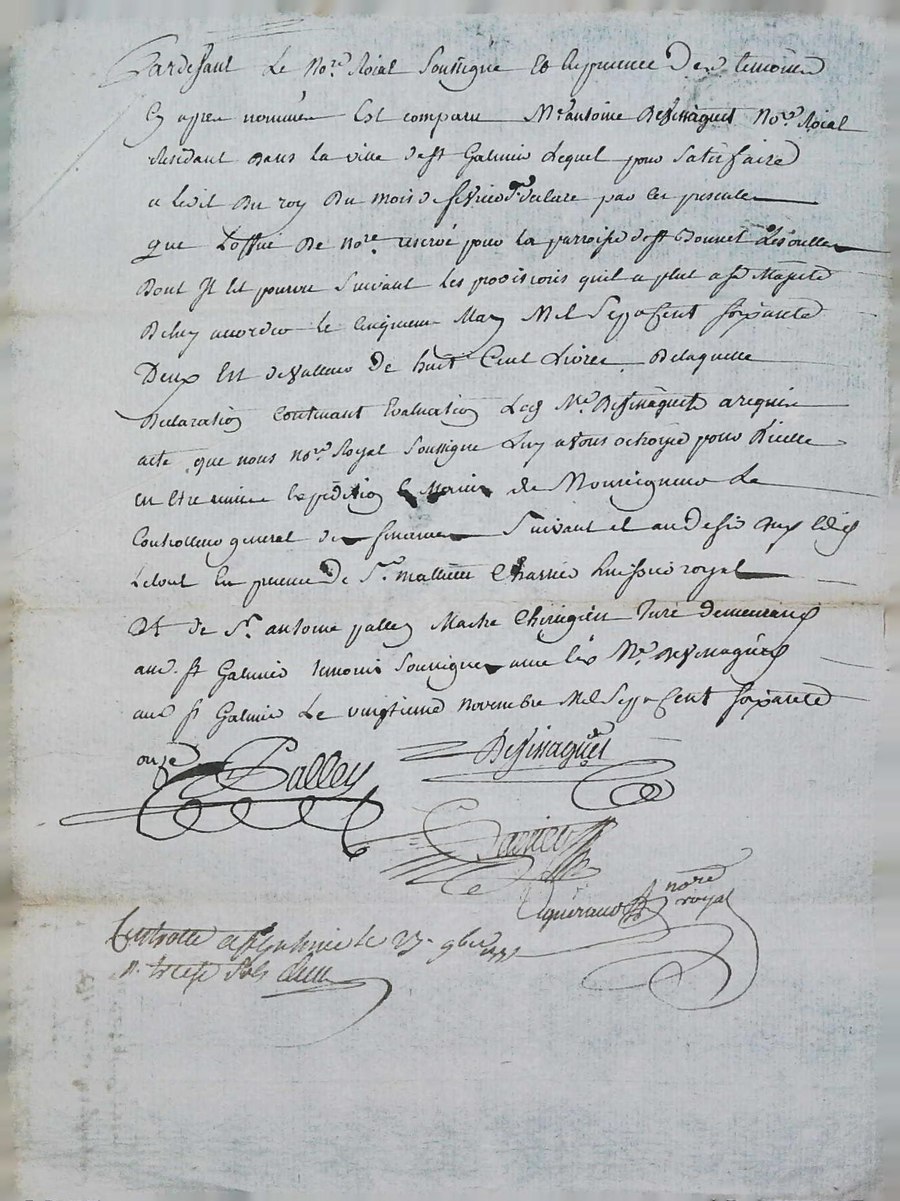 Pardevant Le No.re Roial Soussigné Et En presence Des temoins
Cy apres nommés Est comparu M.e antoine Desvinagues No.re Roial
Residant dans la ville de st Galmier Lequel pour satisfaire
a Ledit du roy du mois de fevrier D.r declare par les presentes
que Loffice De no.re reservé pour la parroisse de st Bonnet Les oulles
Dont Il Est pourvu Suivant les provisions quil a plut a sa Majesté
De luy accorder le cinquieme May Mil Sept Cent soixante
Deux Est de valleur De huit Cent Livres, De laquelle
Declaration Contenant Evaluation Led M.e Desvinagues a requis
acte que nous no.re Royal Soussigné Luy avons octroié pour D'icelle
en Etre remise Expedition es mains de Monseigneur Le
Controlleur general des finances Suivant et au desir dud Edit
Le tout En presence De S.r mathieu Chassier huissier royal
Et de S.r antoine palley Maitre Chirurgien Juré demeurans
aud. st Galmier temoins Soussignes avec led M.e Desvinagues
aud st Galmier Le vingtieme novembre Mil Sept Cent soixante
onze
Palley
Desvinagues
no.re
royal
Controllé a st Galmier le 23 9bre 1771
R. treize sols